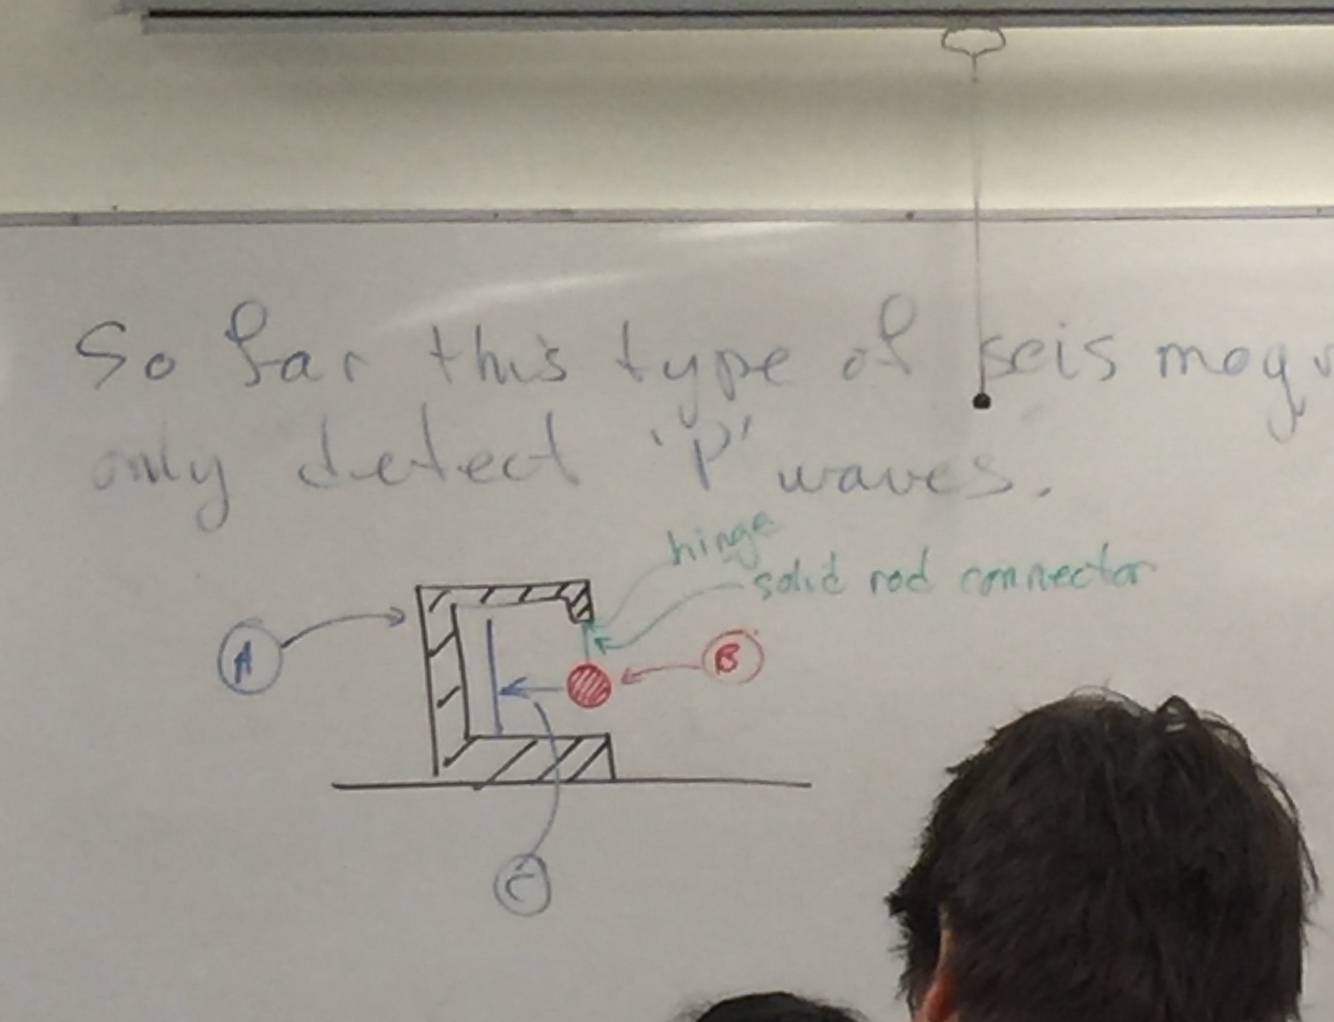 So far this type of seismogr
only detect 'P' waves.
hinge
solid rod connector
A
B
C